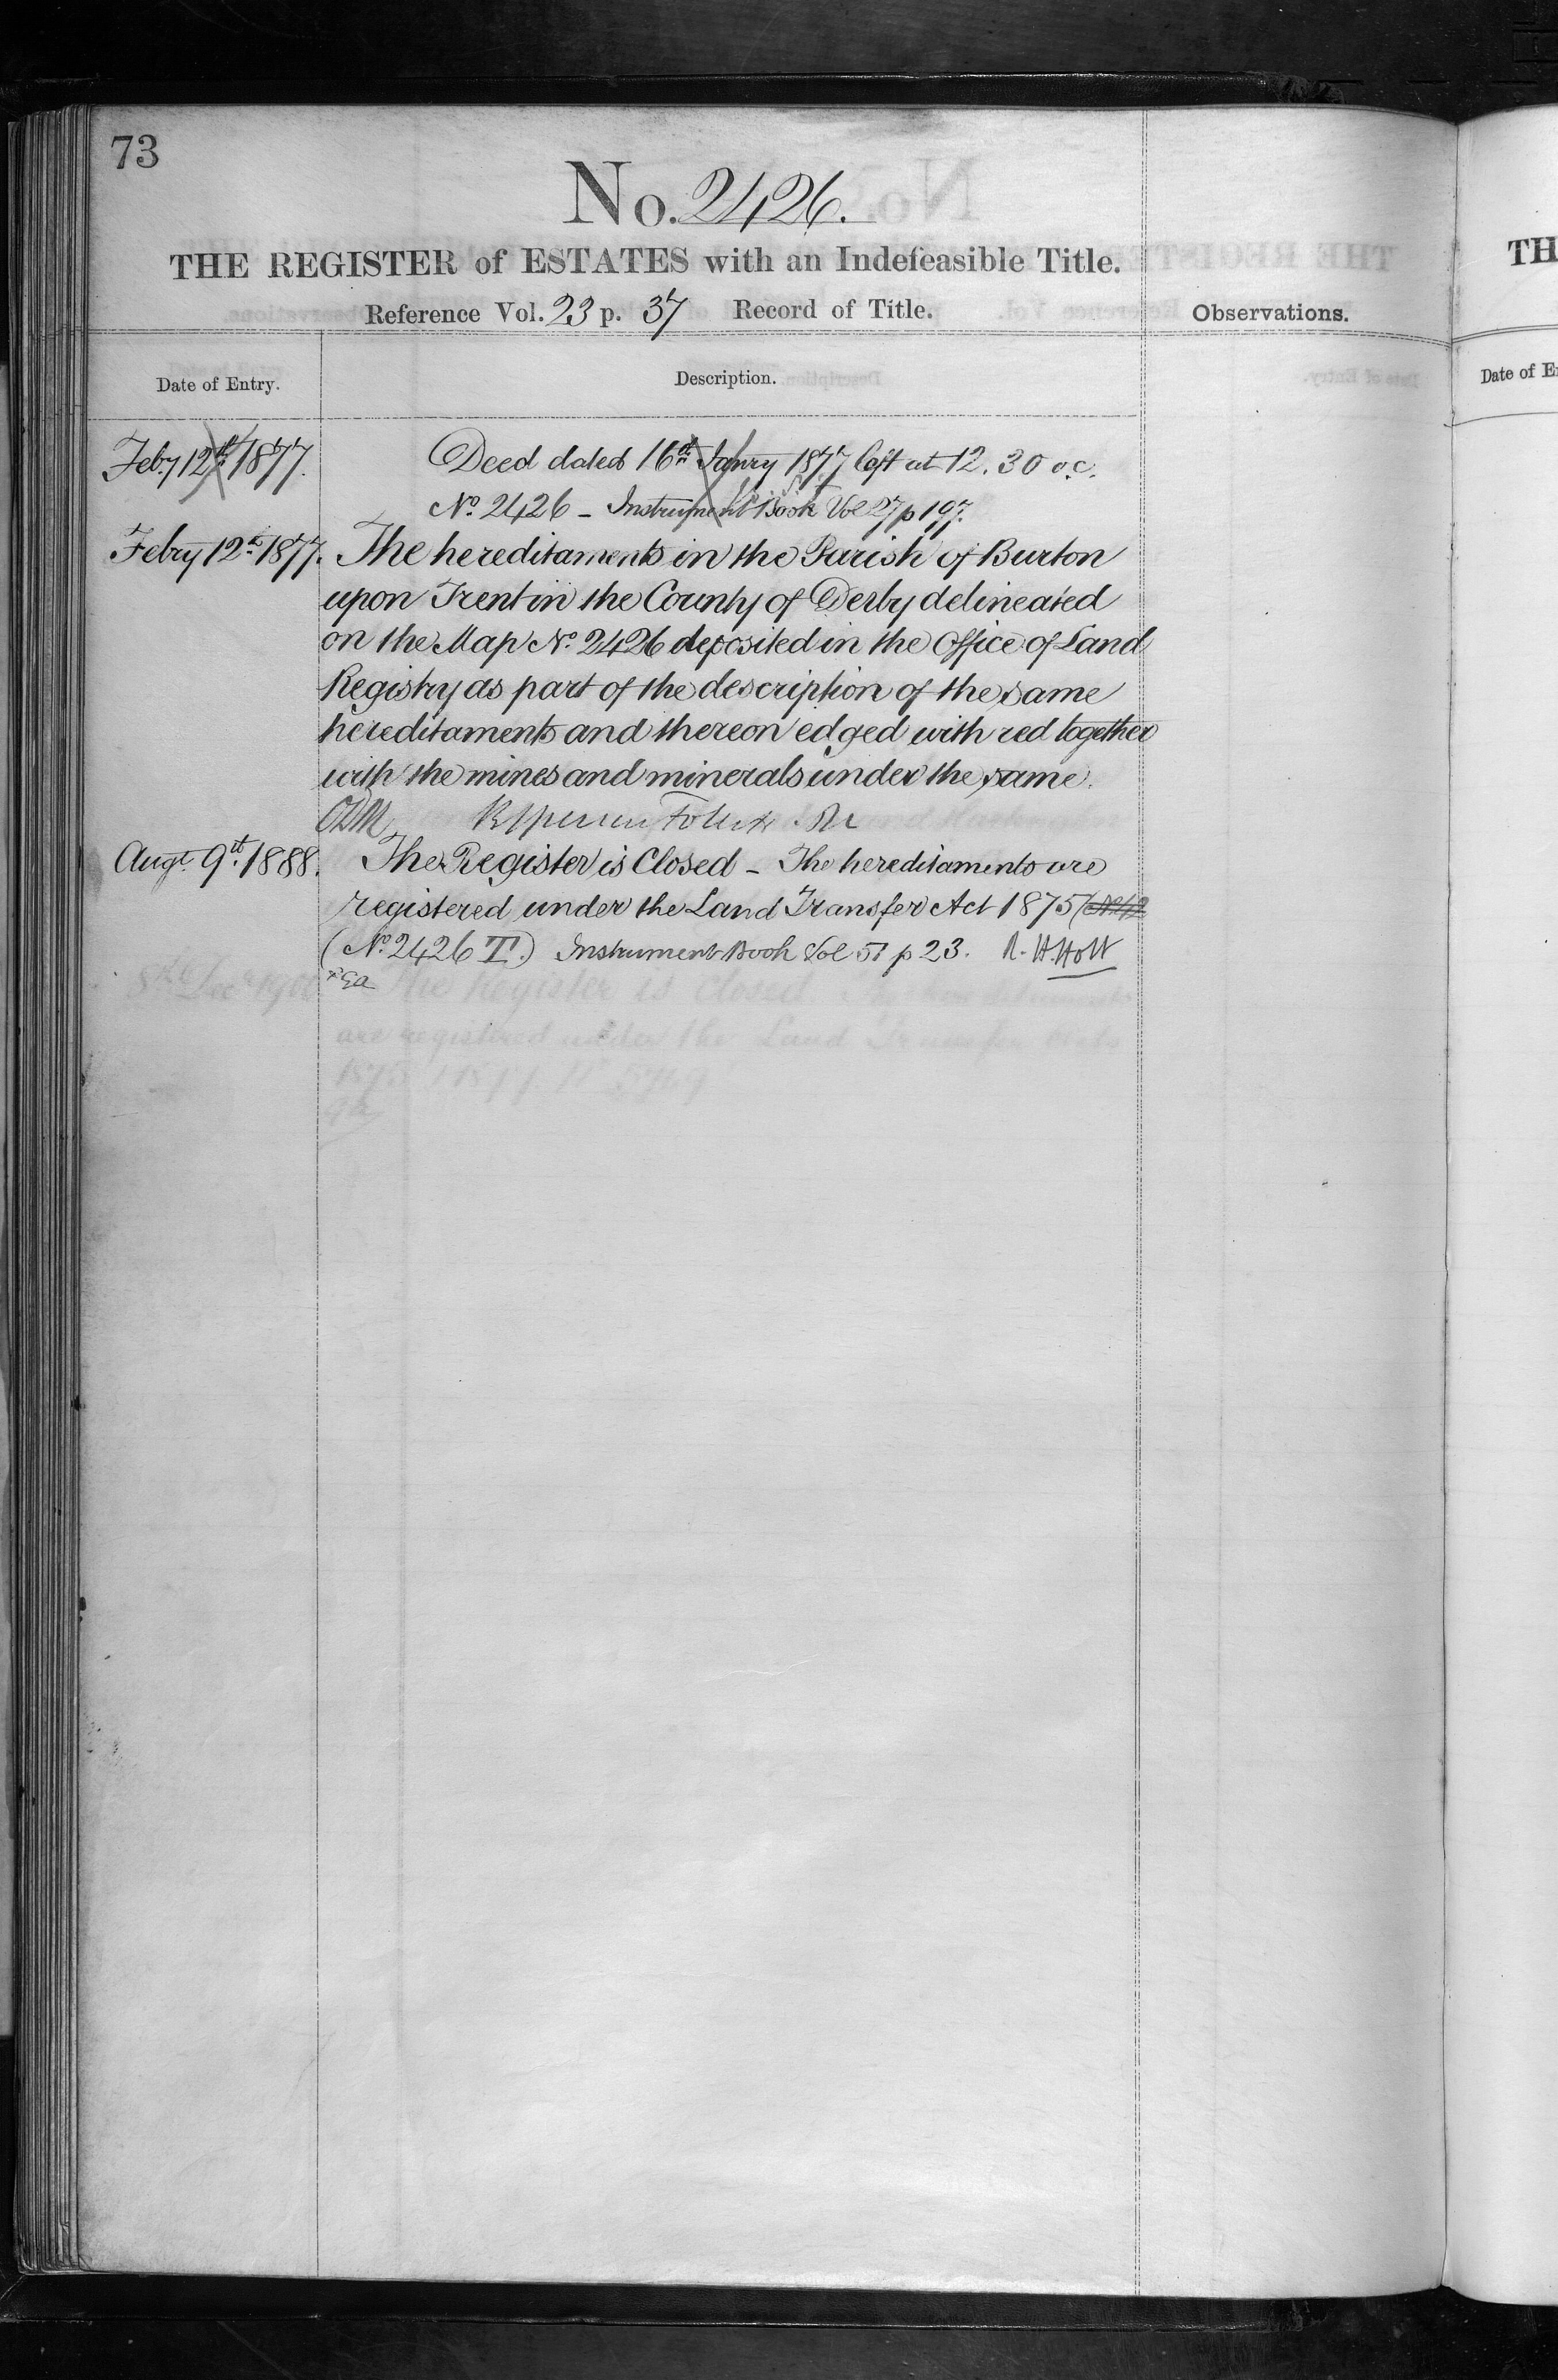 73
No. 2426.
THE REGISTER of ESTATES with an Indefeasible Title.
Reference Vol. 23 p. 37 Record of Title.
Observations.
Date of Entry.
Description.
Feby 12th 1877.
Deed dated 16th Janry 1877 left at 12.30 o.c.
No. 2426 - Instrument Book Vol 27 p 197.
Febry 12th 1877. The hereditaments in the Parish of Burton
upon Trent in the County of Derby delineated
on the Map No. 2426 deposited in the Office of Land
Registry as part of the description of the same
hereditaments and thereon edged with red together
with the mines and minerals under the same.
Augt. 9th 1888. The Register is Closed - The hereditaments are
registered under the Land Transfer Act 1875
(No. 2426 T.) Instrument Book Vol 51 p 23. R. H. Holt
The Register is closed
are registered under the Land Transfer Acts
TH
Date of E